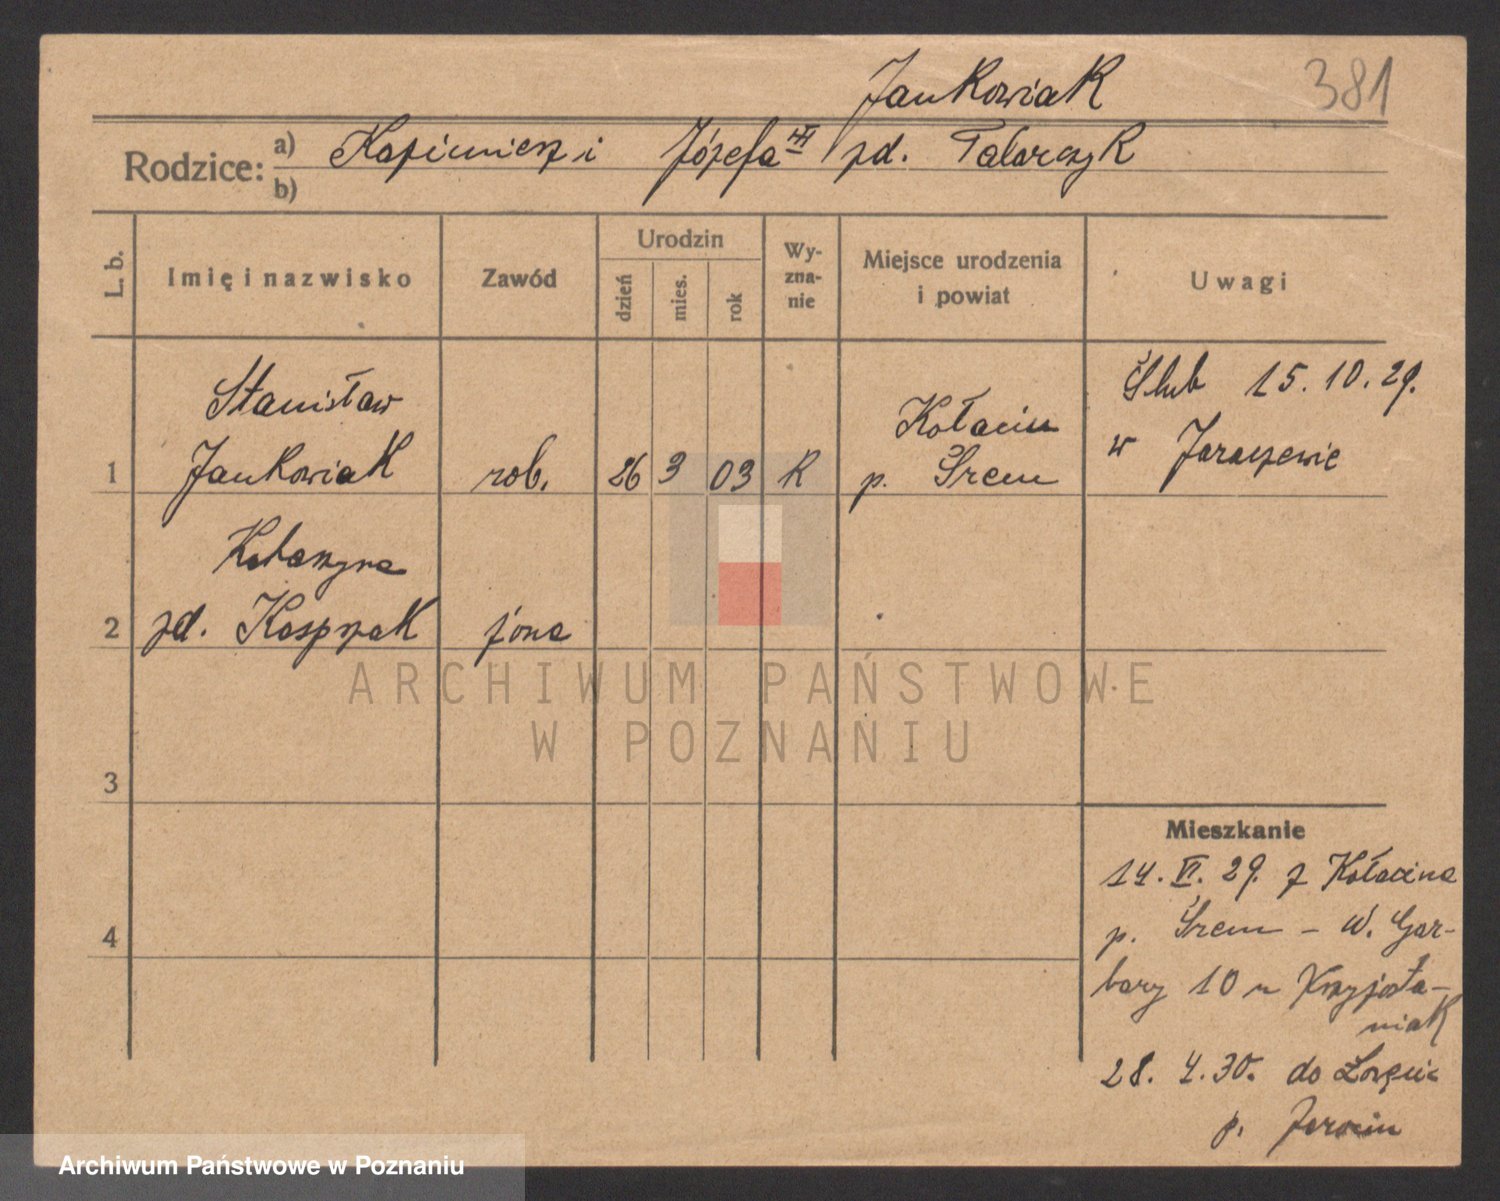 381
Jankowiak
Rodzice: a) Kazimierz i Józefa zd. Talarczyk
b)
L. b.
Imię i nazwisko
Zawód
Urodzin
dzień
mies.
rok
Wy-
zna-
nie
Miejsce urodzenia
i powiat
Uwagi
1
Stanisław
Jankowiak
rob.
26 3 03
R
Kołacin
p. Śrem
Ślub 15.10.29.
w Jaraczewie
2
Katarzyna
zd. Kasprzak
żona
3
4
Mieszkanie
14. VI. 29. z Kołacina
p. Śrem - W. Gar-
bary 10 u Krzyżosta-
niak
28. 4. 30. do
p. Jarocin
ARCHIWUM PAŃSTWOWE
W POZNANIU
Archiwum Państwowe w Poznaniu